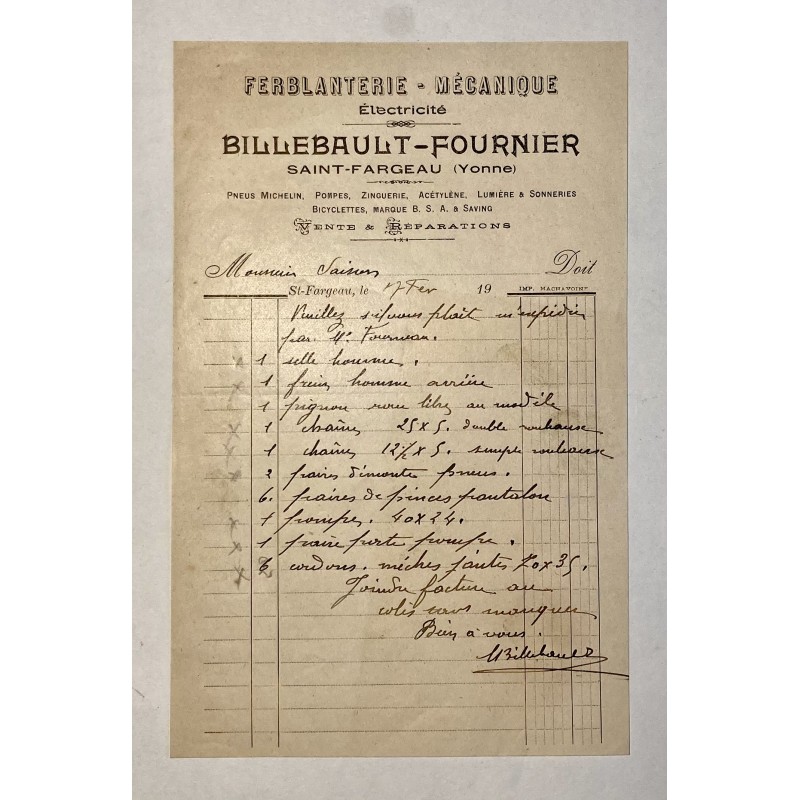 FERBLANTERIE - MÉCANIQUE
Électricité
BILLEBAULT-FOURNIER
SAINT-FARGEAU (Yonne)
PNEUS MICHELIN, POMPES, ZINGUERIE, ACÉTYLÈNE, LUMIÈRE & SONNERIES
BICYCLETTES, MARQUE B. S. A. & SAVING
VENTE & RÉPARATIONS
Monsieur Doit
St-Fargeau, le 17 Fer 19 IMP. MACHAVOINE
Veuillez s'il vous plaît m'expédier
par Mr Fourneau.
1 selle homme.
1 frein homme arrière
1 pignon roue libre au modèle
1 chaîne 25 x 5. double rouleause
1 chaîne 12½ x 5. simple rouleause
2 paires démonte pneus.
6. paires de pinces pantalon
1 pompe. 40 x 24.
1 paire porte pompe.
6 cordons. mèches jantes 70 x 35.
Joindre facture au
colis sans manquer
Bien à vous.
Billebault